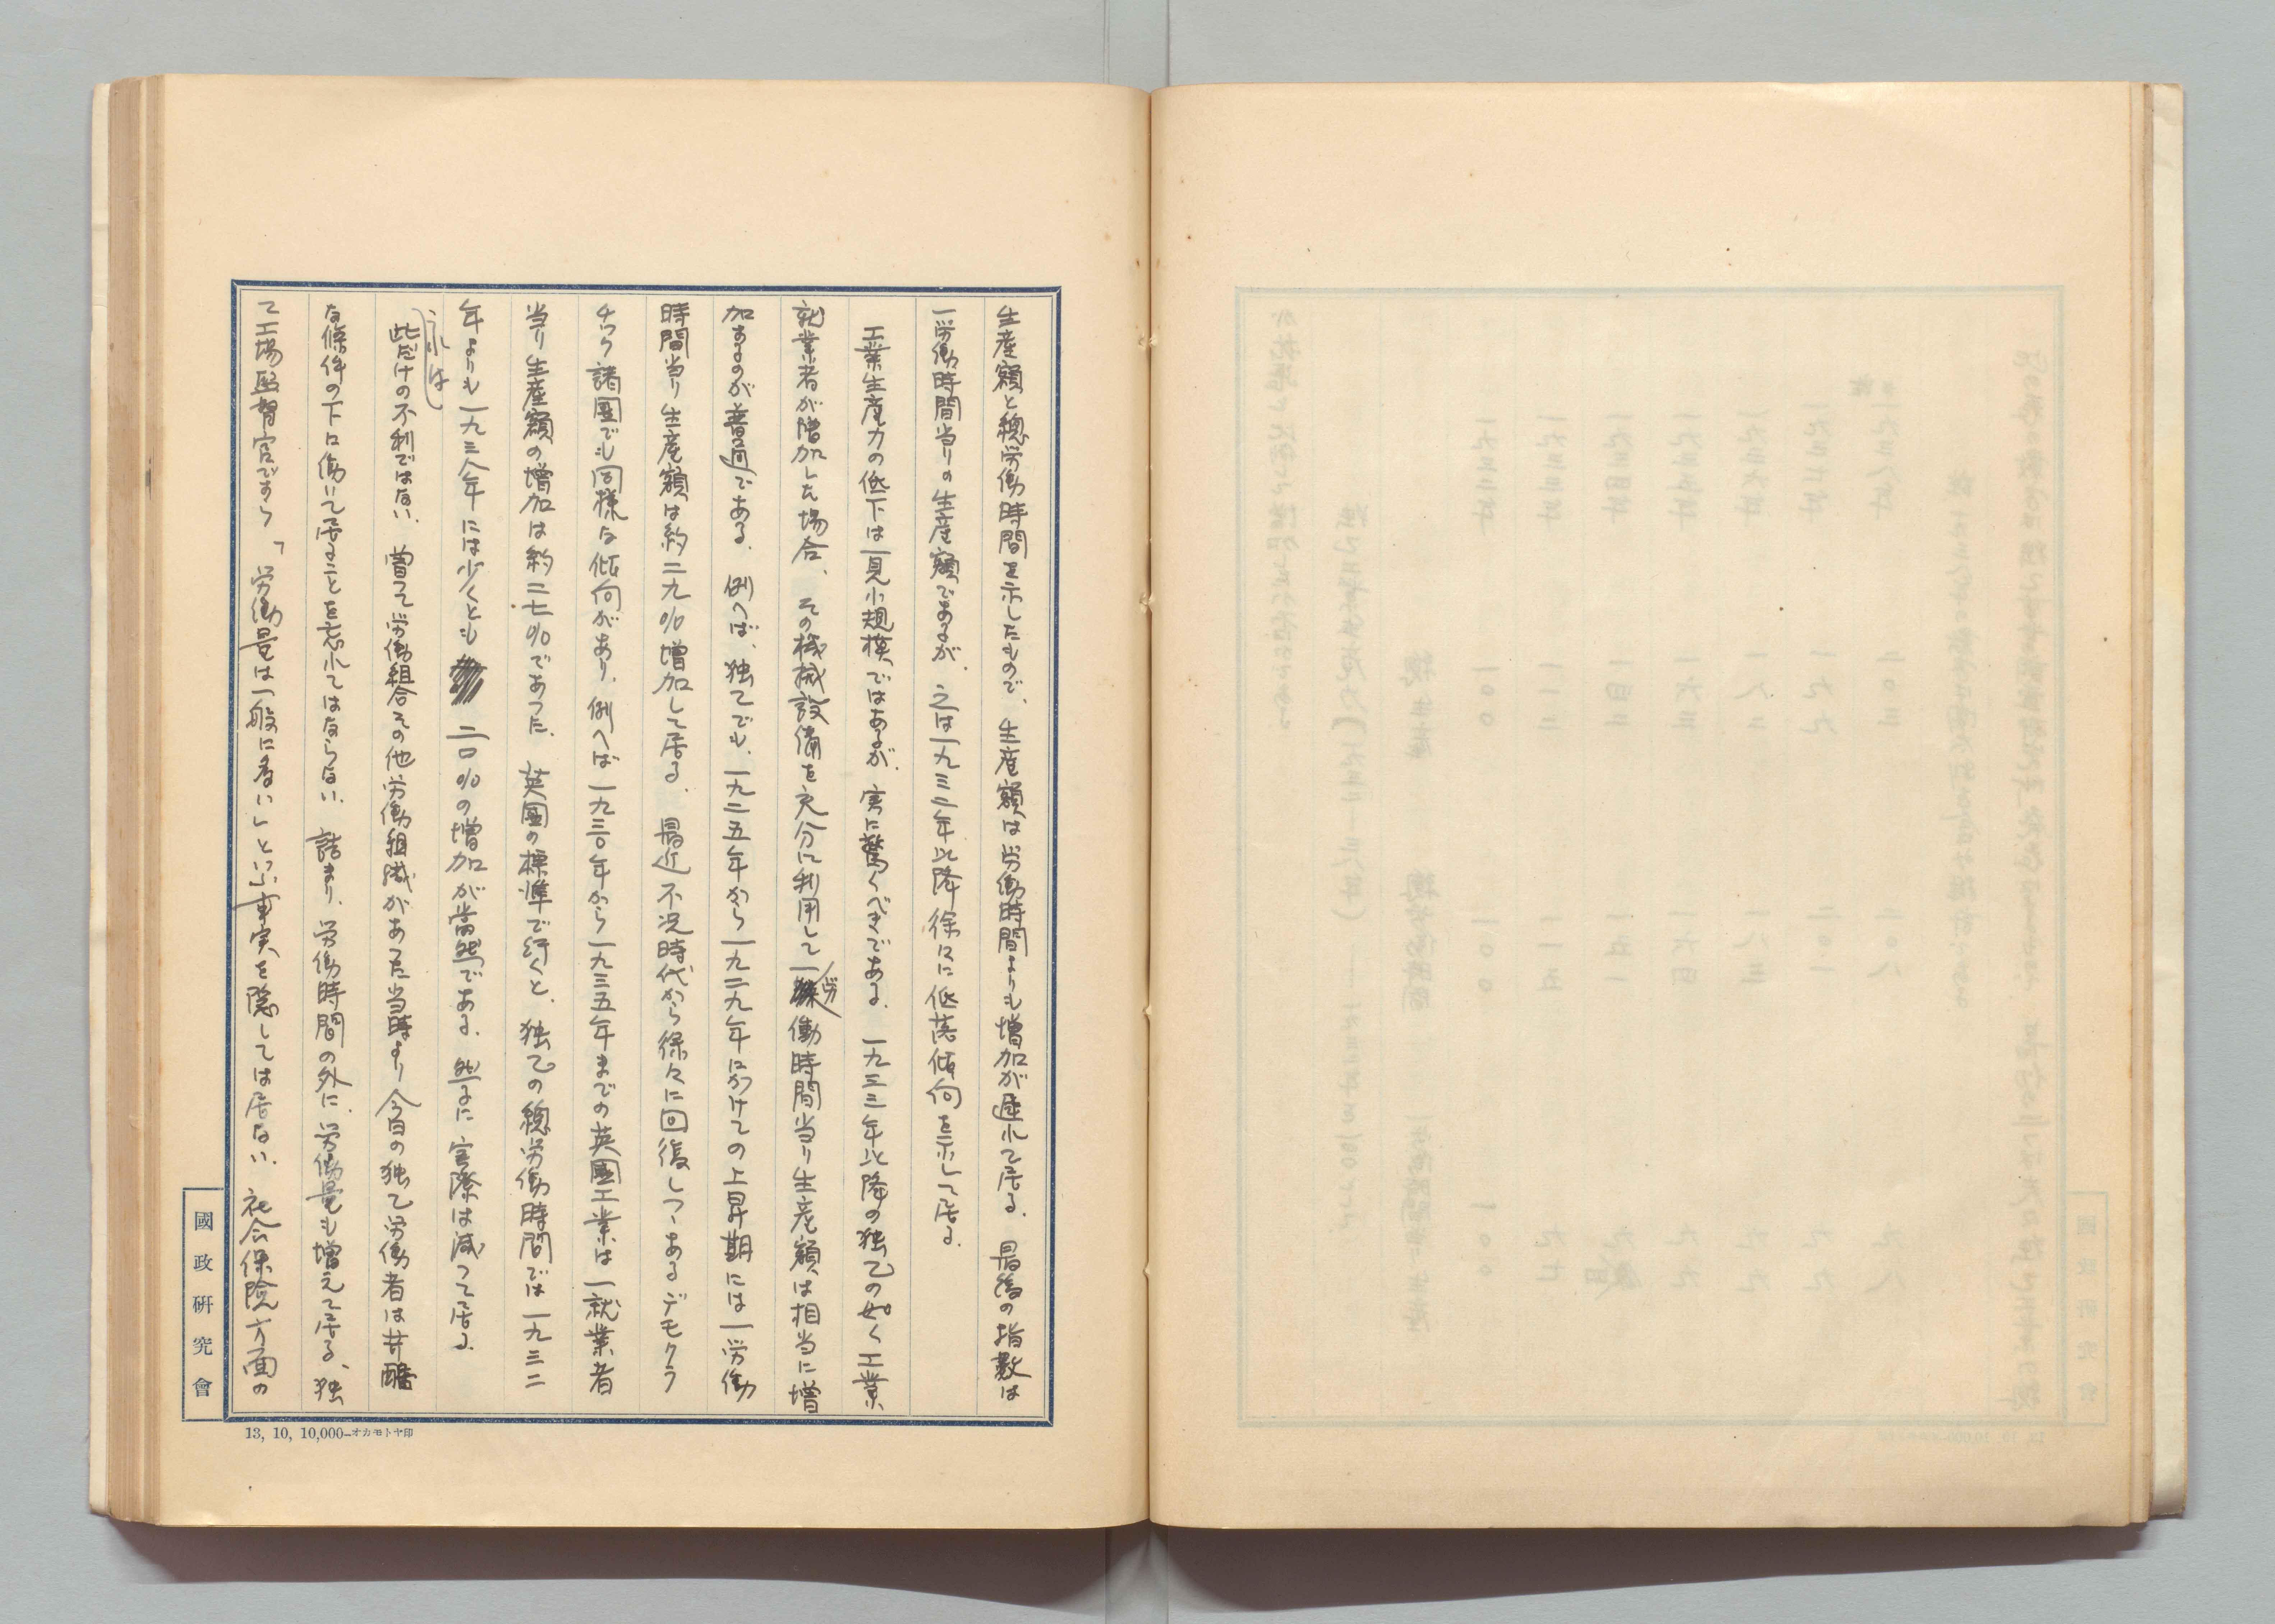 生産額と總労働時間を示したもので、生産額は労働時間よりも増加が遅れて居る。最後の指数は
一労働時間当りの生産額であるが、之は一九三二年以降徐々に低落傾向を示して居る。
工業生産力の低下は一見小規模ではあるが、実に驚くべきである。一九三三年以降の独乙の如く工業
就業者が増加した場合、その機械設備を充分に利用して一労働時間当り生産額は相当に増
加するのが普通である。例へば、独乙でも、一九二五年から一九二九年にかけての上昇期には一労働
時間当り生産額は約二九%増加して居る。最近不況時代から徐々に回復しつゝあるデモクラ
チック諸國でも同様な傾向があり、例へば一九三〇年から一九三五年までの英國工業は一就業者
当り生産額の増加は約二七%であつた。英國の標準で行くと、独乙の總労働時間では一九三二
年よりも一九三八年には少くとも二〇%の増加が当然である。然るに実際は減つて居る。
これは
此だけの不利ではない。曽て労働組合その他労働組織があつた当時より今日の独乙労働者は苛酷
な條件の下に働いて居ることを忘れてはならない。詰まり、労働時間の外に、労働量も増えて居る。独
乙工場監督官ですら「労働量は一般に多い」といふ事実を隠しては居ない。社会保険方面の
國政研究會
13, 10, 10,000—オカモトヤ印